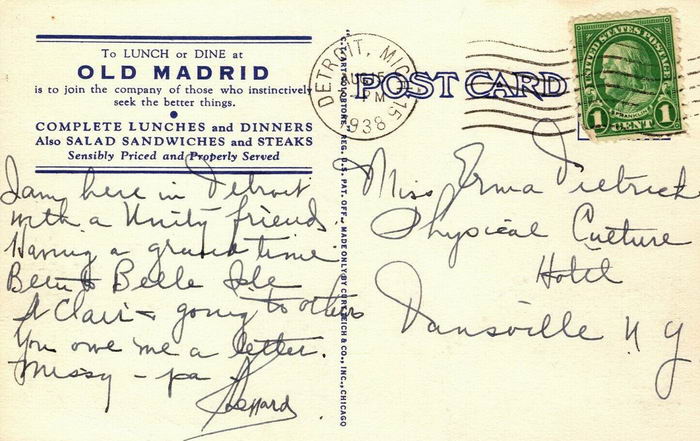 To LUNCH or DINE at
OLD MADRID
is to join the company of those who instinctively
seek the better things.
COMPLETE LUNCHES and DINNERS
Also SALAD SANDWICHES and STEAKS
Sensibly Priced and Properly Served
I am here in Detroit
with a Unity friend.
Having a grand time.
Been to Belle Isle
St Clair & going to others
You owe me a letter.
Missy - pa
Sheppard
REG. U.S. PAT. OFF. MADE ONLY BY CURT TEICH & CO., INC., CHICAGO
DETROIT, MICH.
AUG 15
PM
1938
POST CARD
UNITED STATES POSTAGE
FRANKLIN
1 CENT 1
Miss Erma Dietrick
Physical Culture
Hotel
Dansville N Y